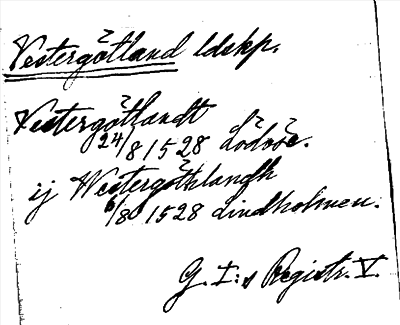 Vestergötland ldskp.
Vestergötlandt
24/8 1528 Lödöse.
ij Westergötklandh
6/8 1528 Lindholmen.
G. I:s Registr. V.